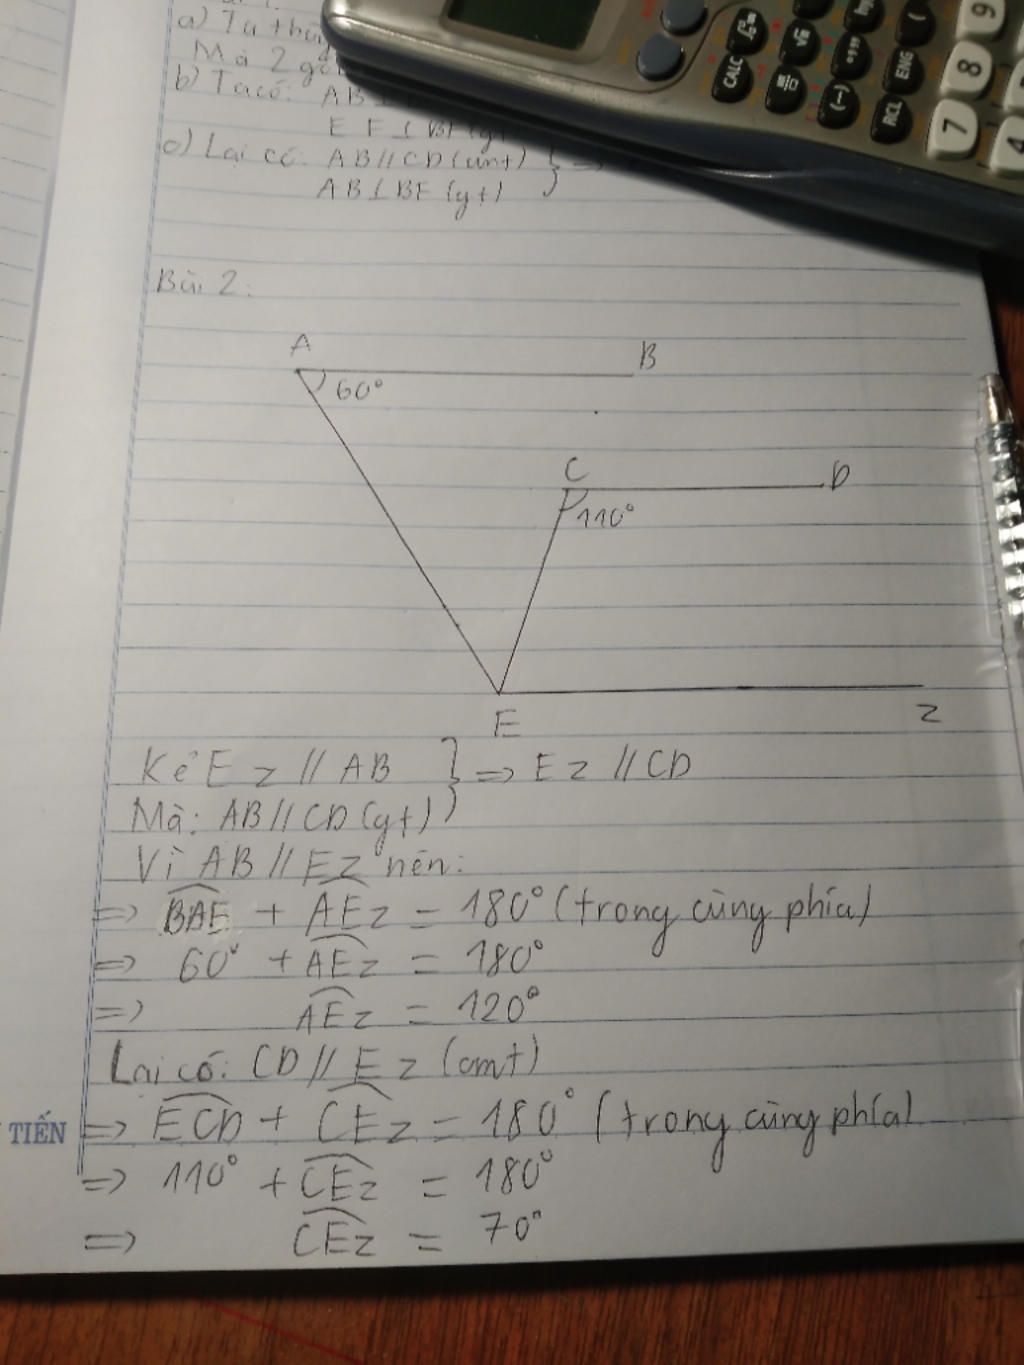 a) Ta
Mà 2
b) Ta có: AB
EF ⊥ BF (gt)
c) Lại có: AB // CD (cmt) } =>
AB ⊥ BF (gt) }
Bài 2:
A
B
60°
C
D
110°
E
z
Kẻ Ez // AB } => Ez // CD
Mà: AB // CD (gt) }
Vì AB // Ez nên:
=> BAE + AEz = 180° (trong cùng phía)
=> 60° + AEz = 180°
=> AEz = 120°
Lại có: CD // Ez (cmt)
TIẾN
=> ECD + CEz = 180° (trong cùng phía)
=> 110° + CEz = 180°
=> CEz = 70°
CALC
ENG
(-)
RCL
9
8
7
4